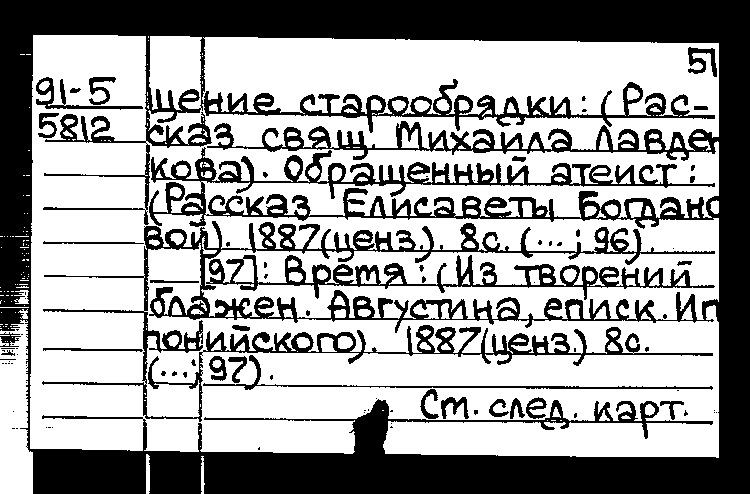 51
91-5 щение старообрядки: (Рас-
5812 сказ свящ. Михаила Лавден
кова). Обращенный атеист:
(Рассказ Елисаветы Богдано
вой). 1887(ценз.). 8с. (...; 96).
[97]: Время: (Из творений
блажен. Августина, еписк. Ип
понийского). 1887(ценз.) 8с.
(...; 97).
См. след. карт.